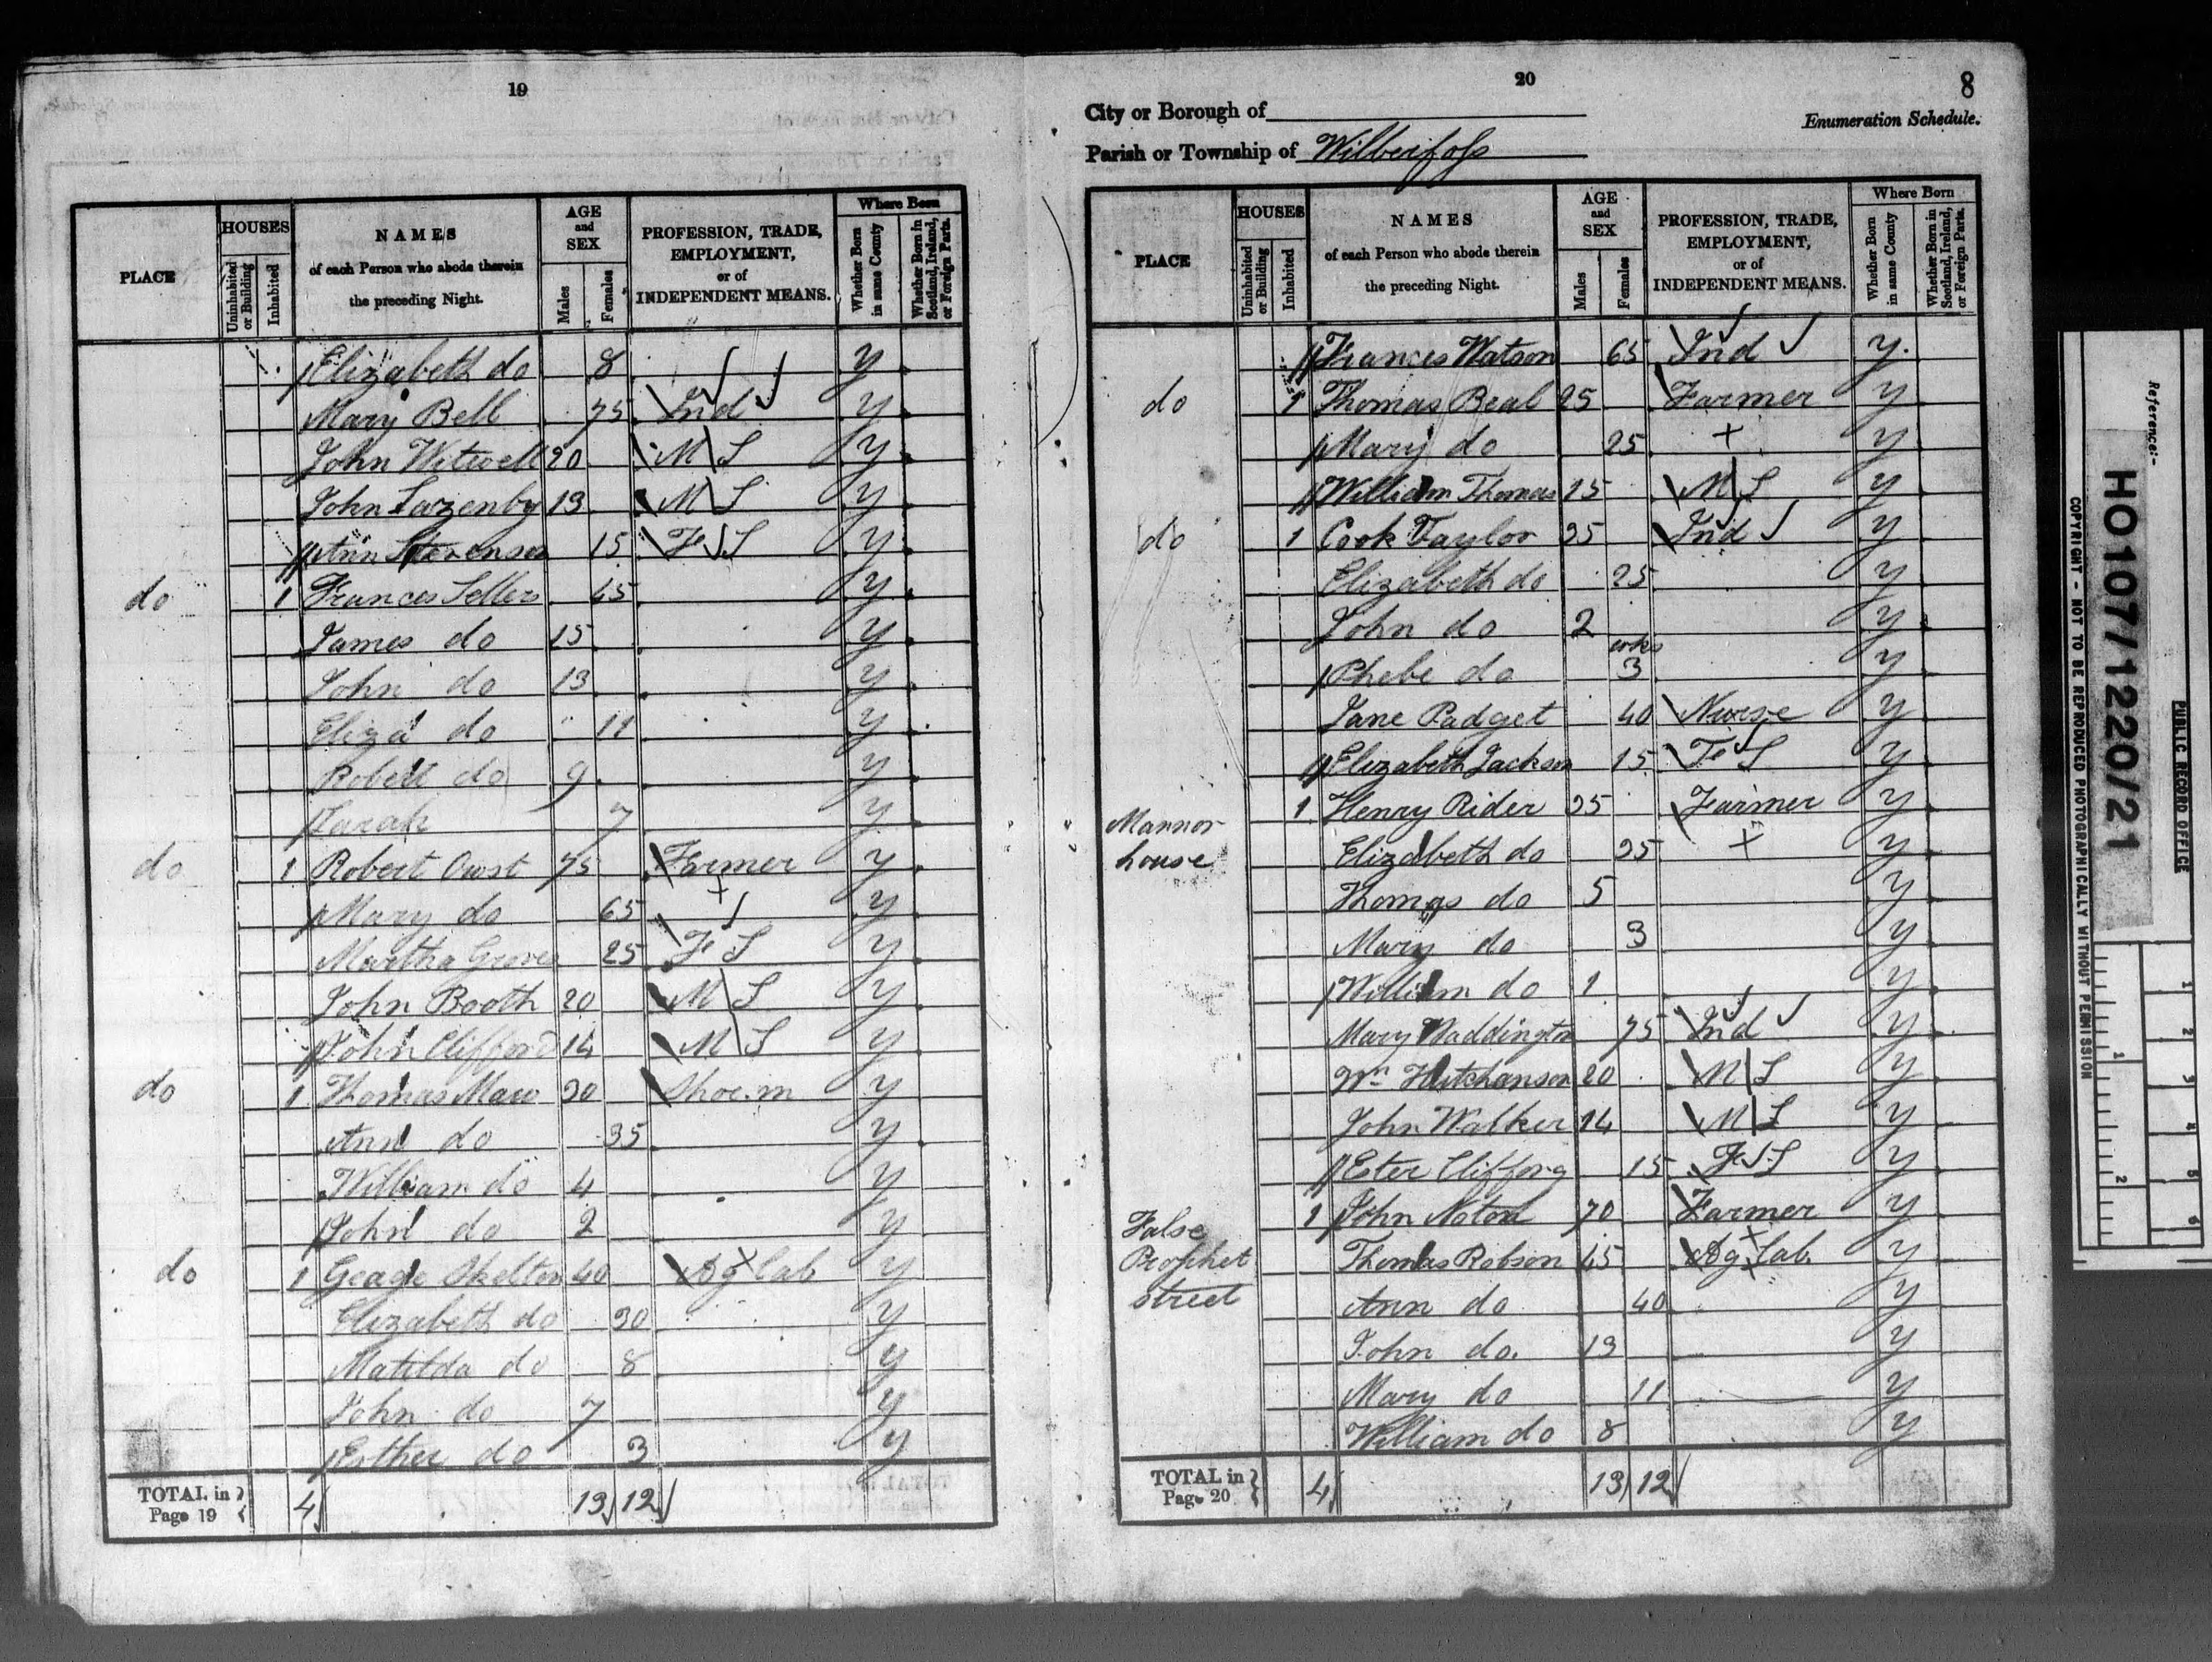 19
PLACE
HOUSES
Uninhabited or Building
Inhabited
NAMES
of each Person who abode therein
the preceding Night.
AGE
and
SEX
Males
Females
PROFESSION, TRADE,
EMPLOYMENT,
or of
INDEPENDENT MEANS.
Where Born
Whether Born in same County
Whether Born in Scotland, Ireland, or Foreign Parts.
Elizabeth do 8 y
Mary Bell 75 Ind y
John Witwell 20 M S y
John Lazenby 13 M S y
Ann Stevenson 15 F S y
do 1 Frances Sellers 45 y
James do 15 y
John do 13 y
Eliza do 11 y
Robert do 9 y
Sarah 7 y
do 1 Robert Owst 75 Farmer y
Mary do 65 y
Martha Groves 25 F S y
John Booth 20 M S y
John Clifford 14 M S y
do 1 Thomas Maw 30 Shoe.m y
Ann do 35 y
William do 4 y
John do 2 y
do 1 Geoge Skelton 40 Ag lab y
Elizabeth do 30 y
Matilda do 8 y
John do 7 y
Esther do 3 y
TOTAL in Page 19 4 13 12
20
8
City or Borough of
Enumeration Schedule.
Parish or Township of Wilberfoss
PLACE
HOUSES
Uninhabited or Building
Inhabited
NAMES
of each Person who abode therein
the preceding Night.
AGE
and
SEX
Males
Females
PROFESSION, TRADE,
EMPLOYMENT,
or of
INDEPENDENT MEANS.
Where Born
Whether Born in same County
Whether Born in Scotland, Ireland, or Foreign Parts.
Frances Watson 65 Ind y
do 1 Thomas Beal 25 Farmer y
Mary do 25 y
William Thomas 25 M S y
do 1 Cook Taylor 35 Ind y
Elizabeth do 25 y
John do 2 y
Phebe do wks 3 y
Jane Padget 40 Nurse y
Elizabeth Jackson 15 F S y
Mannor house 1 Henry Rider 35 Farmer y
Elizabeth do 25 y
Thomas do 5 y
Mary do 3 y
William do 1 y
Mary Waddington 75 Ind y
Wm Hutchanson 20 M S y
John Walker 14 M S y
Ester Clifford 15 F S y
False Prophet street 1 John Noton 70 Farmer y
Thomas Robson 45 Ag lab. y
Ann do 40 y
John do. 13 y
Mary do 11 y
William do 8 y
TOTAL in Page 20 4 13 12
PUBLIC RECORD OFFICE
Reference:-
HO107/1220/21
COPYRIGHT - NOT TO BE REPRODUCED PHOTOGRAPHICALLY WITHOUT PERMISSION
1
2
1
2
3
4
5
6